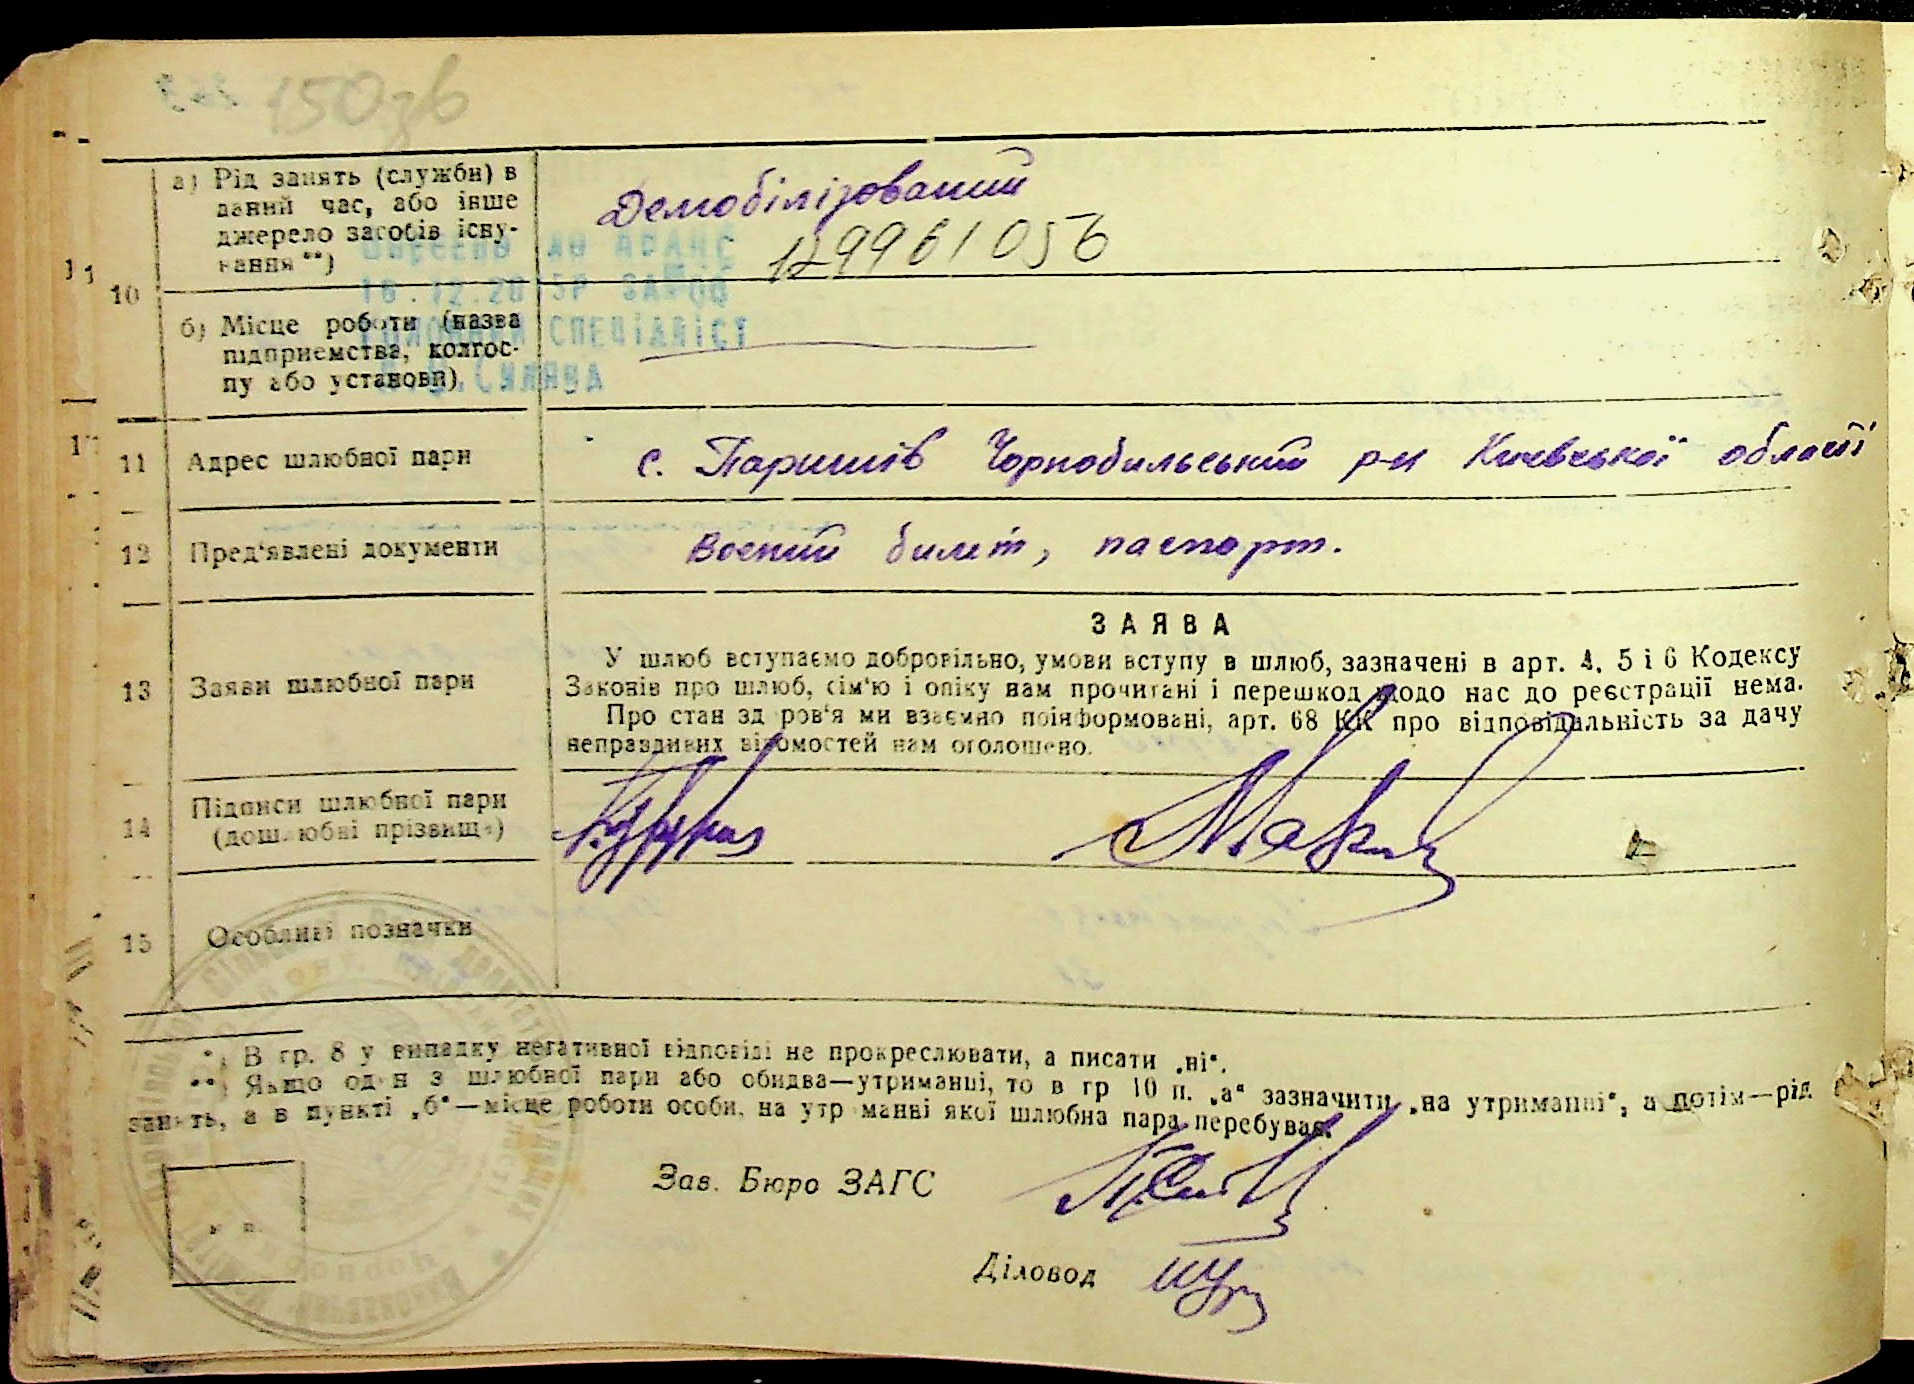 150зв
а) Рід занять (служби) в
даний час, або інше
джерело засобів існу-
вання **)
Демобілізований
129961056
ВНЕСЕНО ДО ДРАЦС
ГОЛОВНИЙ СПЕЦІАЛІСТ
10
б) Місце роботи (назва
підприємства, колгос-
пу або установи)
11 Адрес шлюбної пари
с. Паришів Чорнобильський р-н Київської області
12 Пред'явлені документи
Воєний билєт, паспорт.
13 Заяви шлюбної пари
ЗАЯВА
У шлюб вступаємо добровільно, умови вступу в шлюб, зазначені в арт. 4, 5 і 6 Кодексу
Законів про шлюб, сім'ю і опіку нам прочитані і перешкод щодо нас до реєстрації нема.
Про стан здоров'я ми взаємно поінформовані, арт. 68 КК про відповідальність за дачу
неправдивих відомостей нам оголошено.
14 Підписи шлюбної пари
(дошлюбні прізвища)
15 Особливі позначки
*) В гр. 8 у випадку негативної відповіді не прокреслювати, а писати „ні“.
**) Якщо один з шлюбної пари або обидва—утриманці, то в гр 10 п. „а“ зазначити „на утриманні“, а потім—рід
занять, а в пункті „б“—місце роботи особи, на утриманні якої шлюбна пара перебуває.
м. п.
Зав. Бюро ЗАГС
Діловод